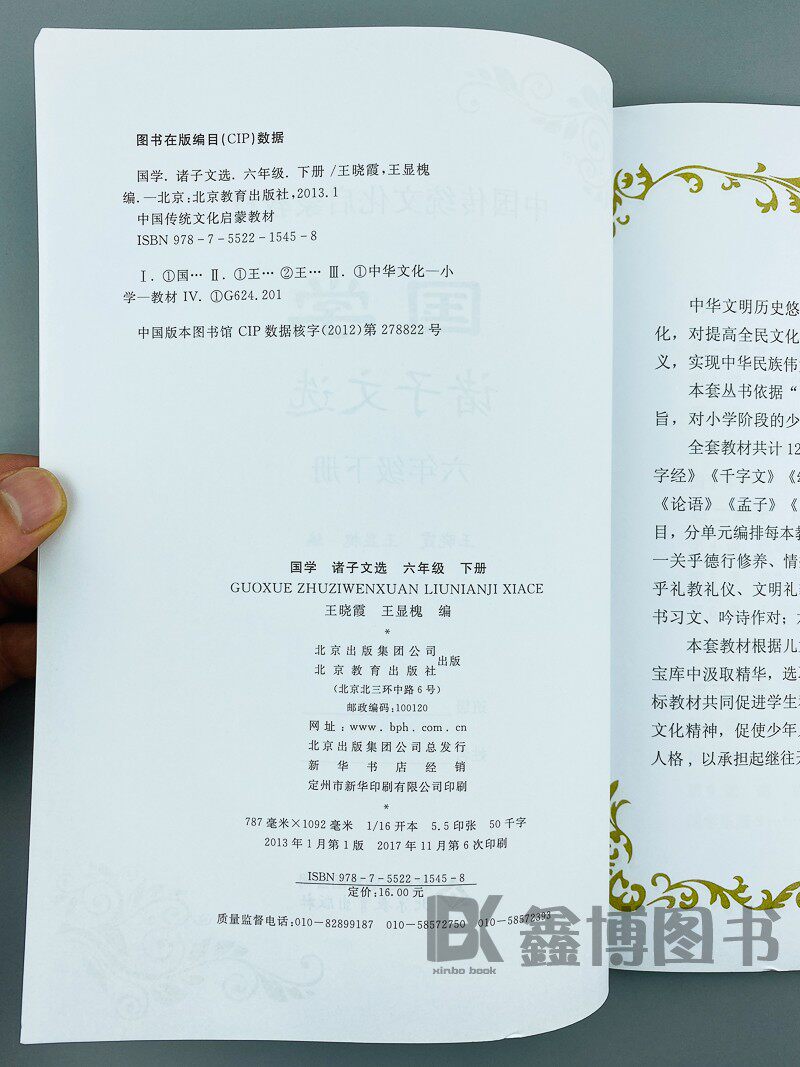 图书在版编目(CIP)数据
国学. 诸子文选. 六年级. 下册/王晓霞,王显槐
编.—北京:北京教育出版社,2013.1
中国传统文化启蒙教材
ISBN 978-7-5522-1545-8
Ⅰ. ①国… Ⅱ. ①王… ②王… Ⅲ. ①中华文化—小
学—教材 Ⅳ. ①G624.201
中国版本图书馆 CIP 数据核字(2012)第 278822 号
国学 诸子文选 六年级 下册
GUOXUE ZHUZIWENXUAN LIUNIANJI XIACE
王晓霞 王显槐 编
*
北京出版集团公司
北京教育出版社
出版
(北京北三环中路6号)
邮政编码:100120
网址:www.bph.com.cn
北京出版集团公司总发行
新华书店经销
定州市新华印刷有限公司印刷
*
787 毫米×1092 毫米 1/16 开本 5.5 印张 50 千字
2013 年 1 月第 1 版 2017 年 11 月第 6 次印刷
ISBN 978-7-5522-1545-8
定价:16.00 元
质量监督电话:010-82899187 010-58572750 010-58572393
中华文明历史悠
化,对提高全民文化
义,实现中华民族伟
本套丛书依据“
旨,对小学阶段的少
全套教材共计 12
字经》《千字文》《
《论语》《孟子》《
目,分单元编排每本教
一关乎德行修养、情
乎礼教礼仪、文明礼
书习文、吟诗作对;
本套教材根据儿
宝库中汲取精华,选
标教材共同促进学生
文化精神,促使少年
人格,以承担起继往
BK
xinbo book
鑫博图书